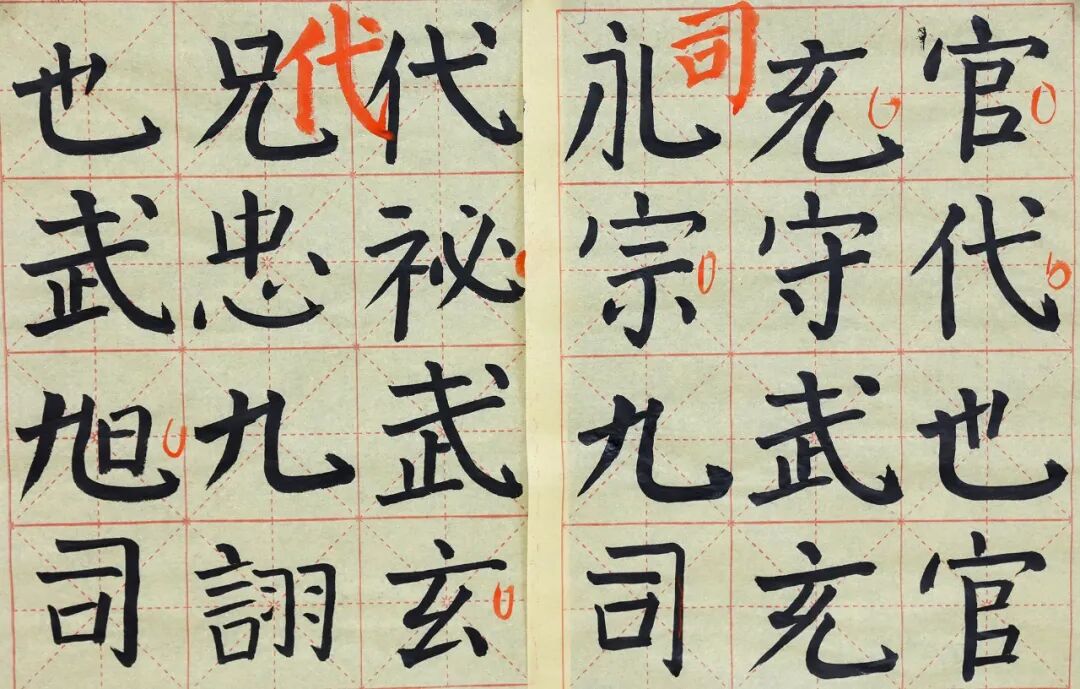 官代也官
充守武充
司
礼宗九司
代祕武玄
代
兄忠九詡
也武旭司